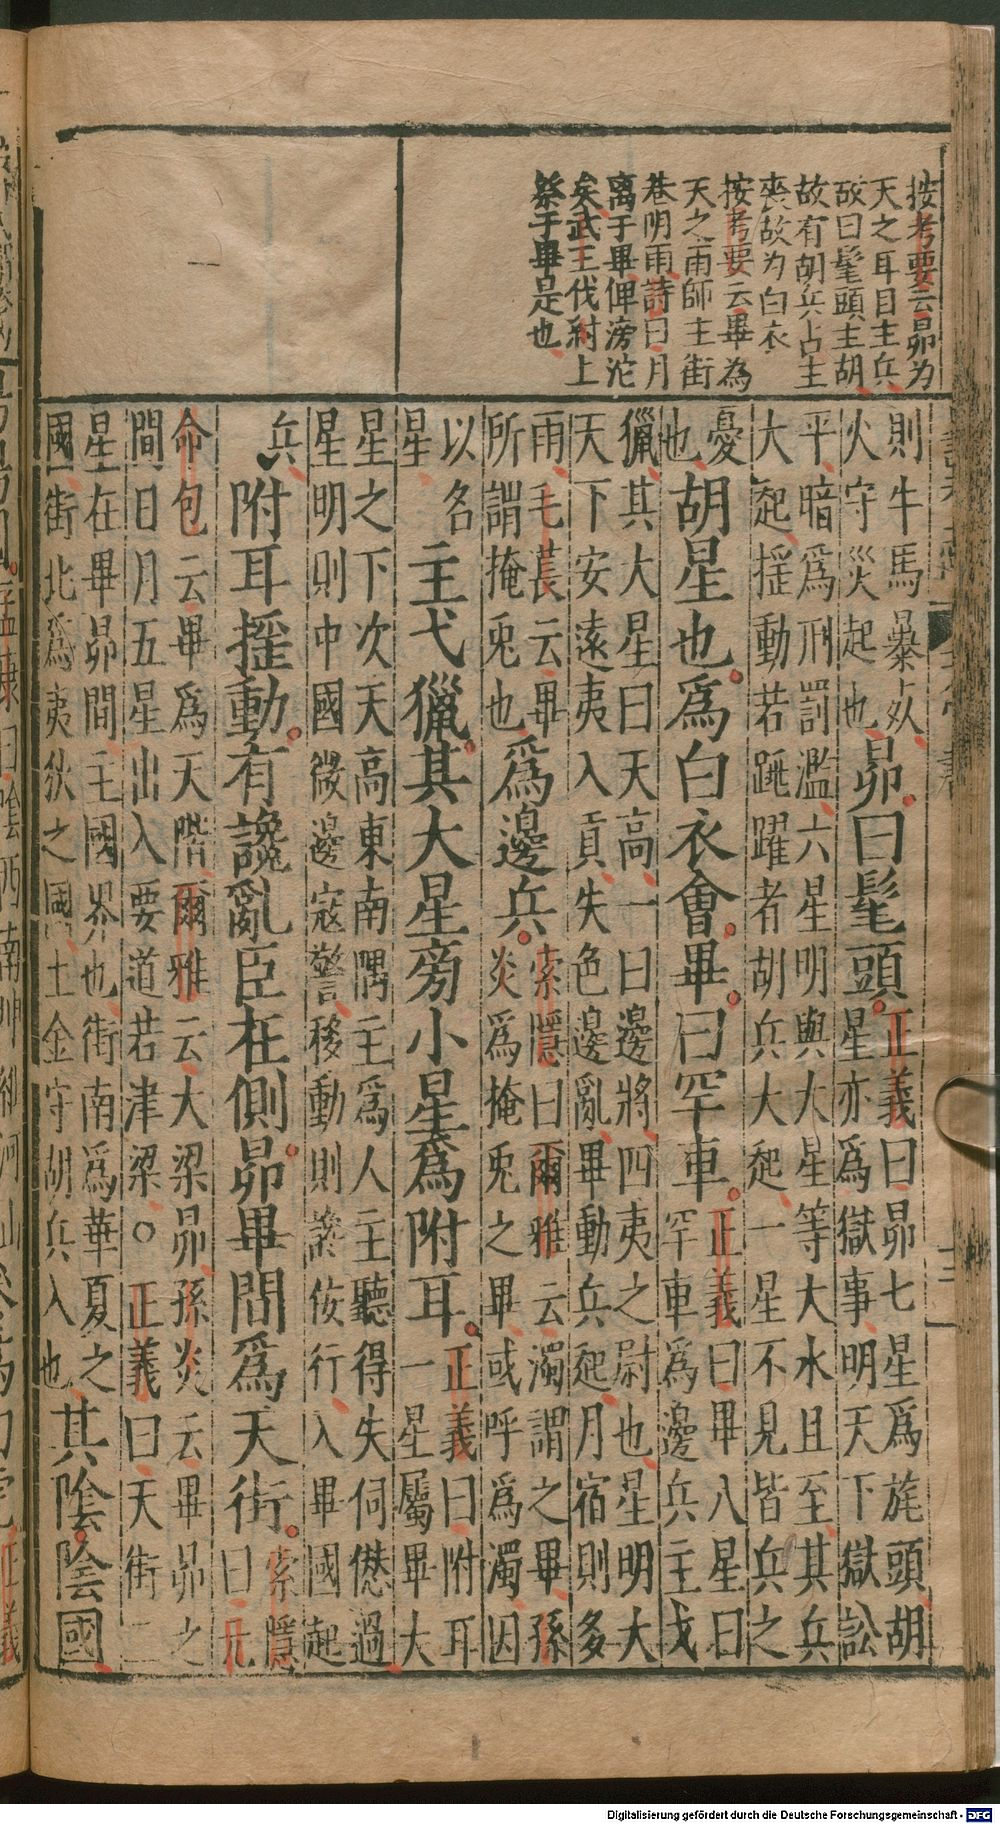 按考要云昴为
天之耳目主兵
故曰髦頭主胡
故有胡兵占主
喪故为白衣
按考要云畢為
天之雨師主街
巷明雨詩曰月
离于畢俾滂沱
矣武王伐紂上
祭于畢是也
則牛馬暴死
火守災起也
昴曰髦頭
正義曰昴七星爲旄頭胡
星亦爲獄事明天下獄訟
平暗爲刑罰濫六星明與大星等大水且至其兵
大起揺動若跳躍者胡兵大起一星不見皆兵之
憂
也
胡星也爲白衣會畢曰罕車
正義曰畢八星曰
罕車爲邊兵主弋
獵其大星曰天高一曰邊將四夷之尉也星明大
天下安遠夷入貢失色邊亂畢動兵起月宿則多
雨毛萇云畢
所謂掩兎也
爲邊兵
索隱曰爾雅云濁謂之畢孫
炎爲掩兎之畢或呼爲濁因
以名
星
主弋獵其大星旁小星爲附耳
正義曰附耳
一星屬畢大
星之下次天高東南隅主爲人主聽得失伺愆過
星明則中國微邊寇警移動則讒佞行入畢國起
兵
附耳揺動有讒亂臣在側昴畢間爲天街
索隱
曰元
命包云畢爲天階爾雅云大梁昴孫炎云畢昴之
間日月五星出入要道若津梁○正義曰天街二
星在畢昴間主國界也街南爲華夏之
國街北爲夷狄之國土金守胡兵入也
其陰陰國
Digitalisierung gefördert durch die Deutsche Forschungsgemeinschaft - DFG